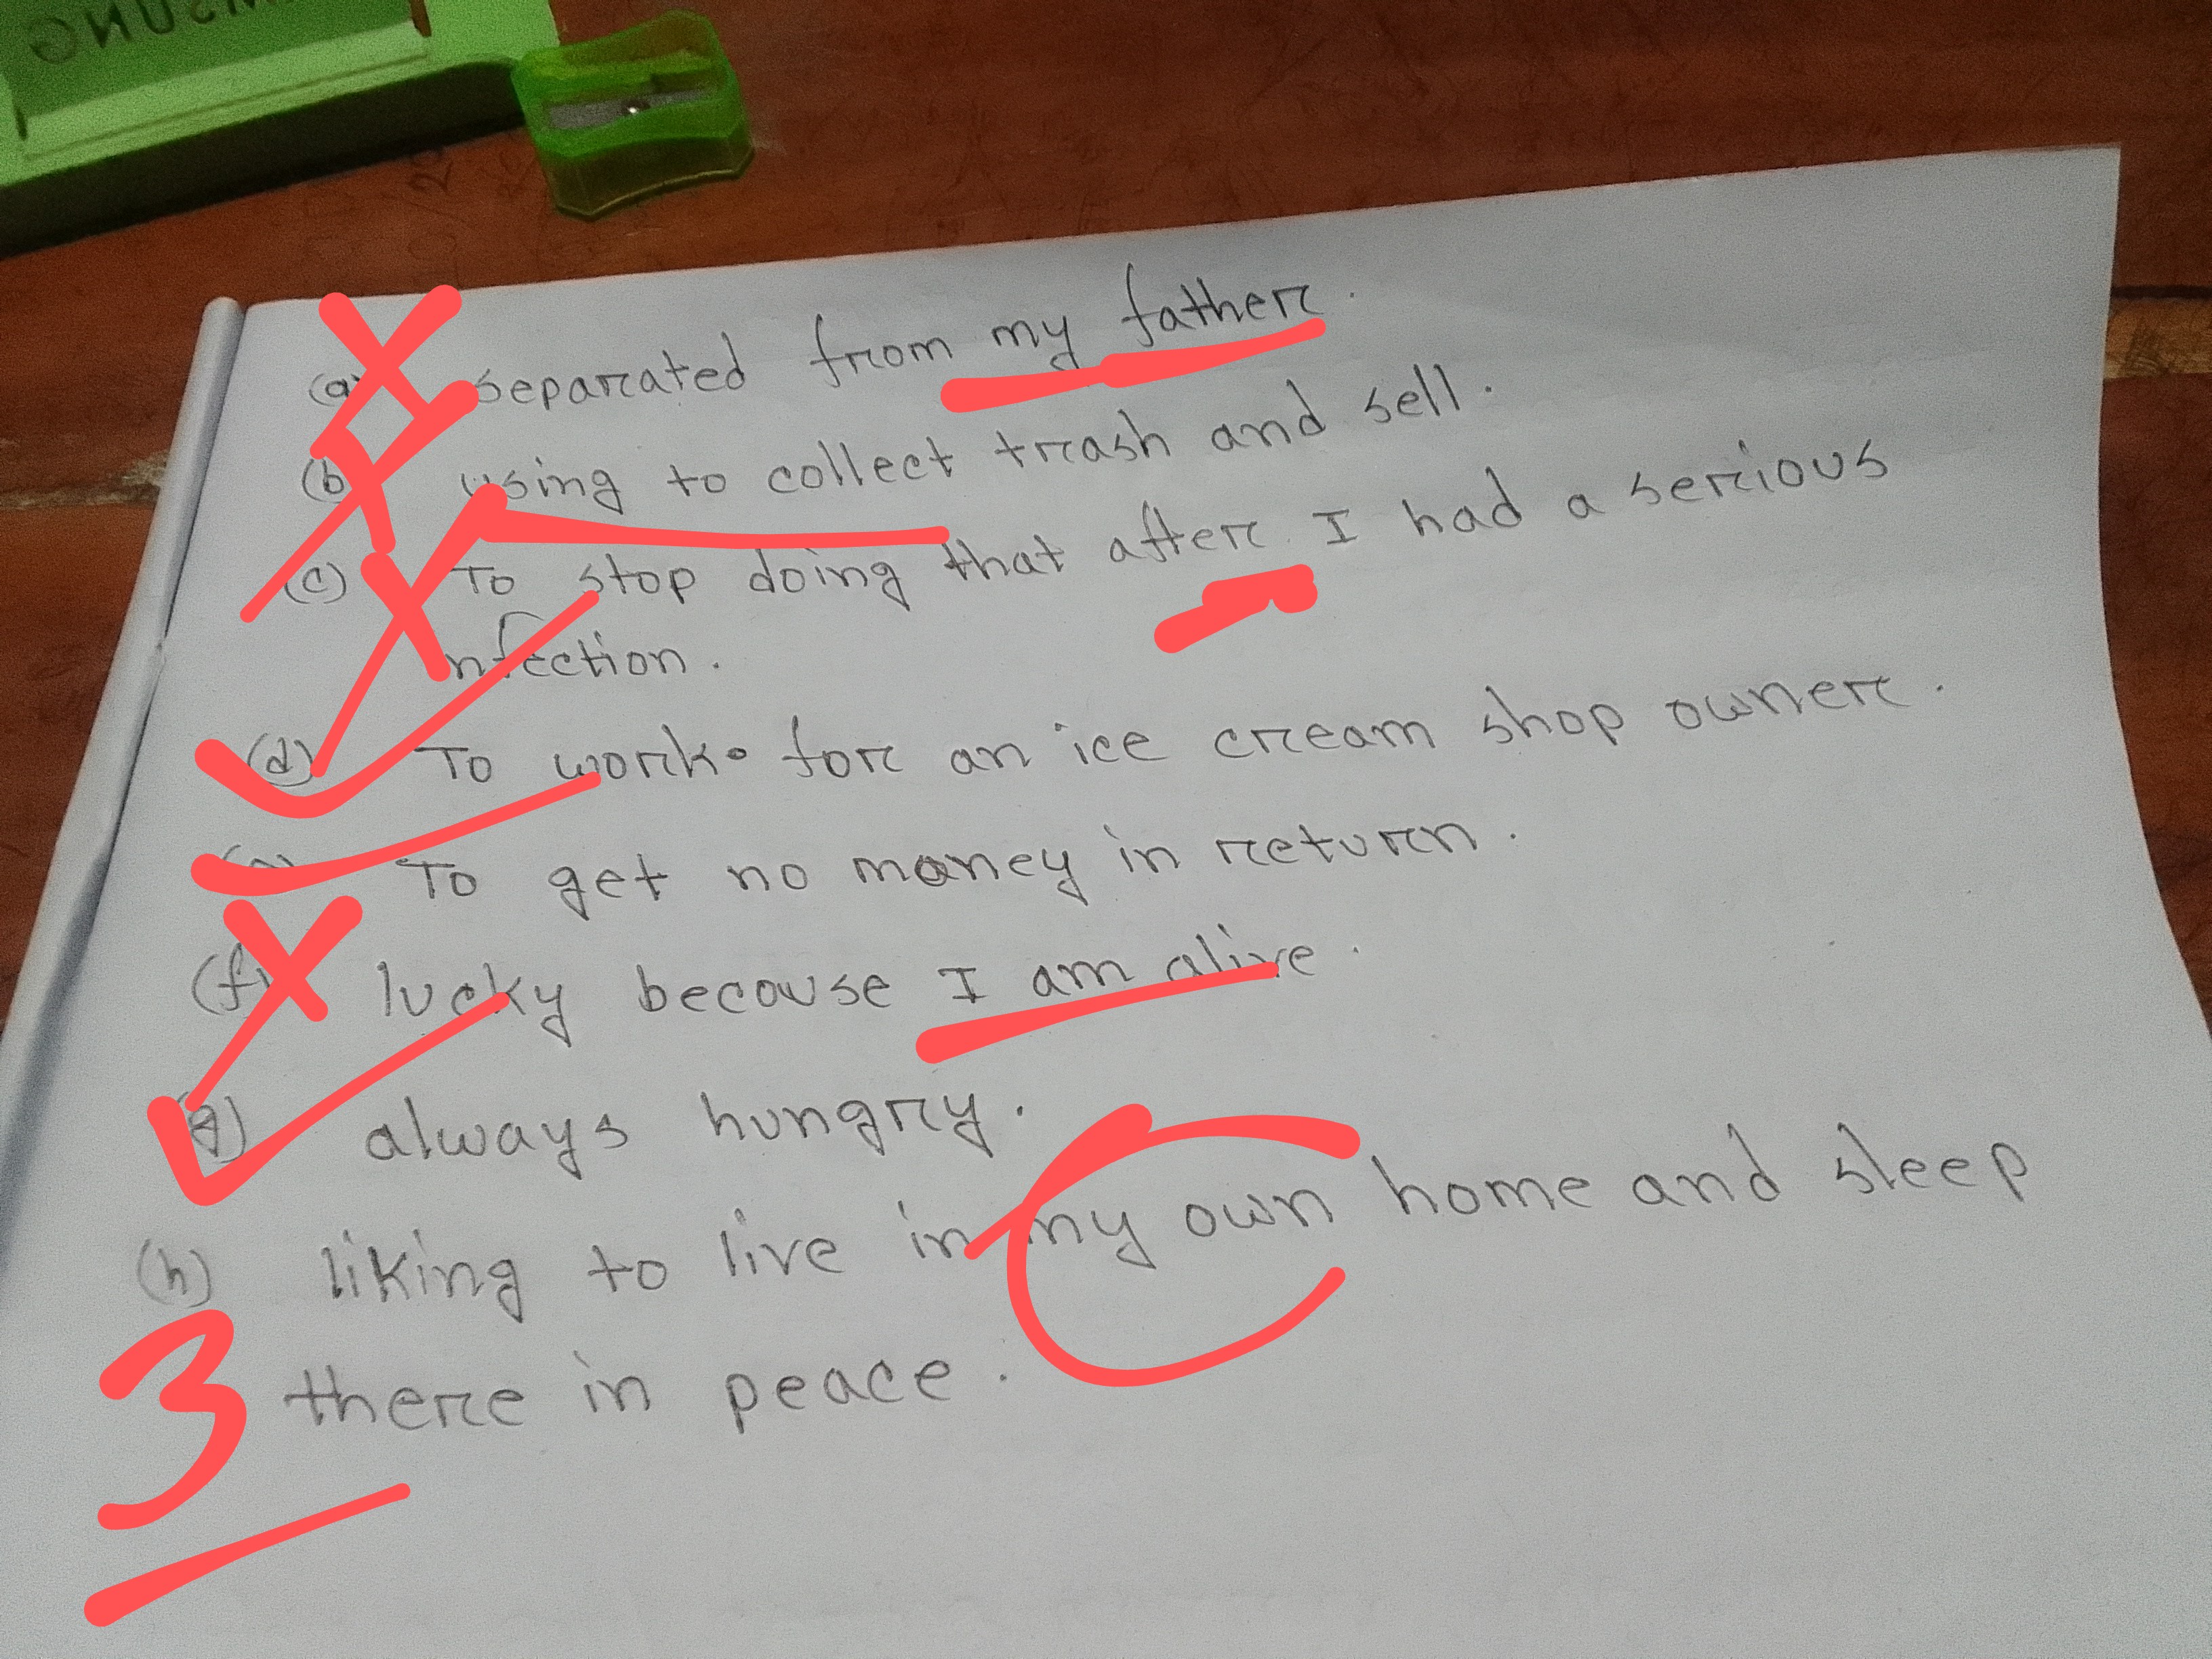 SAMSUNG
(a) separated from my father.
(b) using to collect trash and sell.
(c) To stop doing that after I had a serious
infection.
(d) To work for an ice cream shop owner.
To get no money in return.
(f) lucky because I am alive.
(g) always hungry.
(h) liking to live in my own home and sleep
3 there in peace.